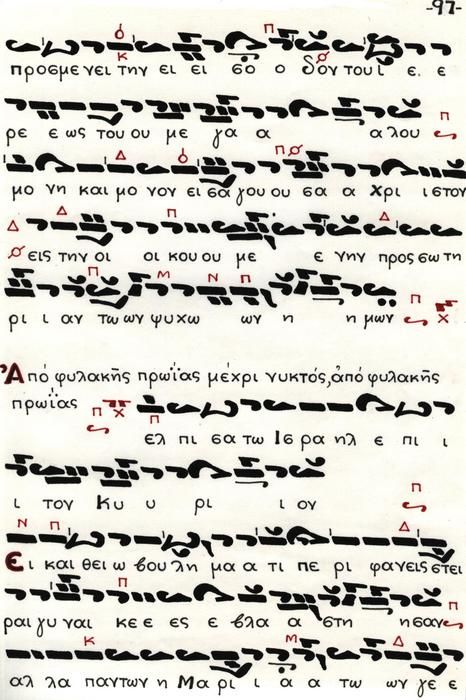 -97-
προσμε νει την ει ει σό ο δον του ί ε. ε
ρε ε ως του ου με γα α α λου
μο νη και μο νον ει σα γου ου σα α χρι ιστον
εις την οι οι κου ου με ε νην προς σω τη
ρι ι αν τω ων ψυχω ων η η μων
Ἀπό φυλακῆς πρωΐας μέχρι νυκτός, ἀπό φυλακῆς
πρωΐας
ελ πι σα τω Ισ ρα ηλ ε πι ι
ι τον Κυ υ ρι ι ον
Ει και θει ω βου λη μα α τι πε ρι φανεις στει
ραι γυ ναι κε ε ες ε βλα α στη ησαν
αλ λα παντων η Μα ρι ι α α τω ων γε ε